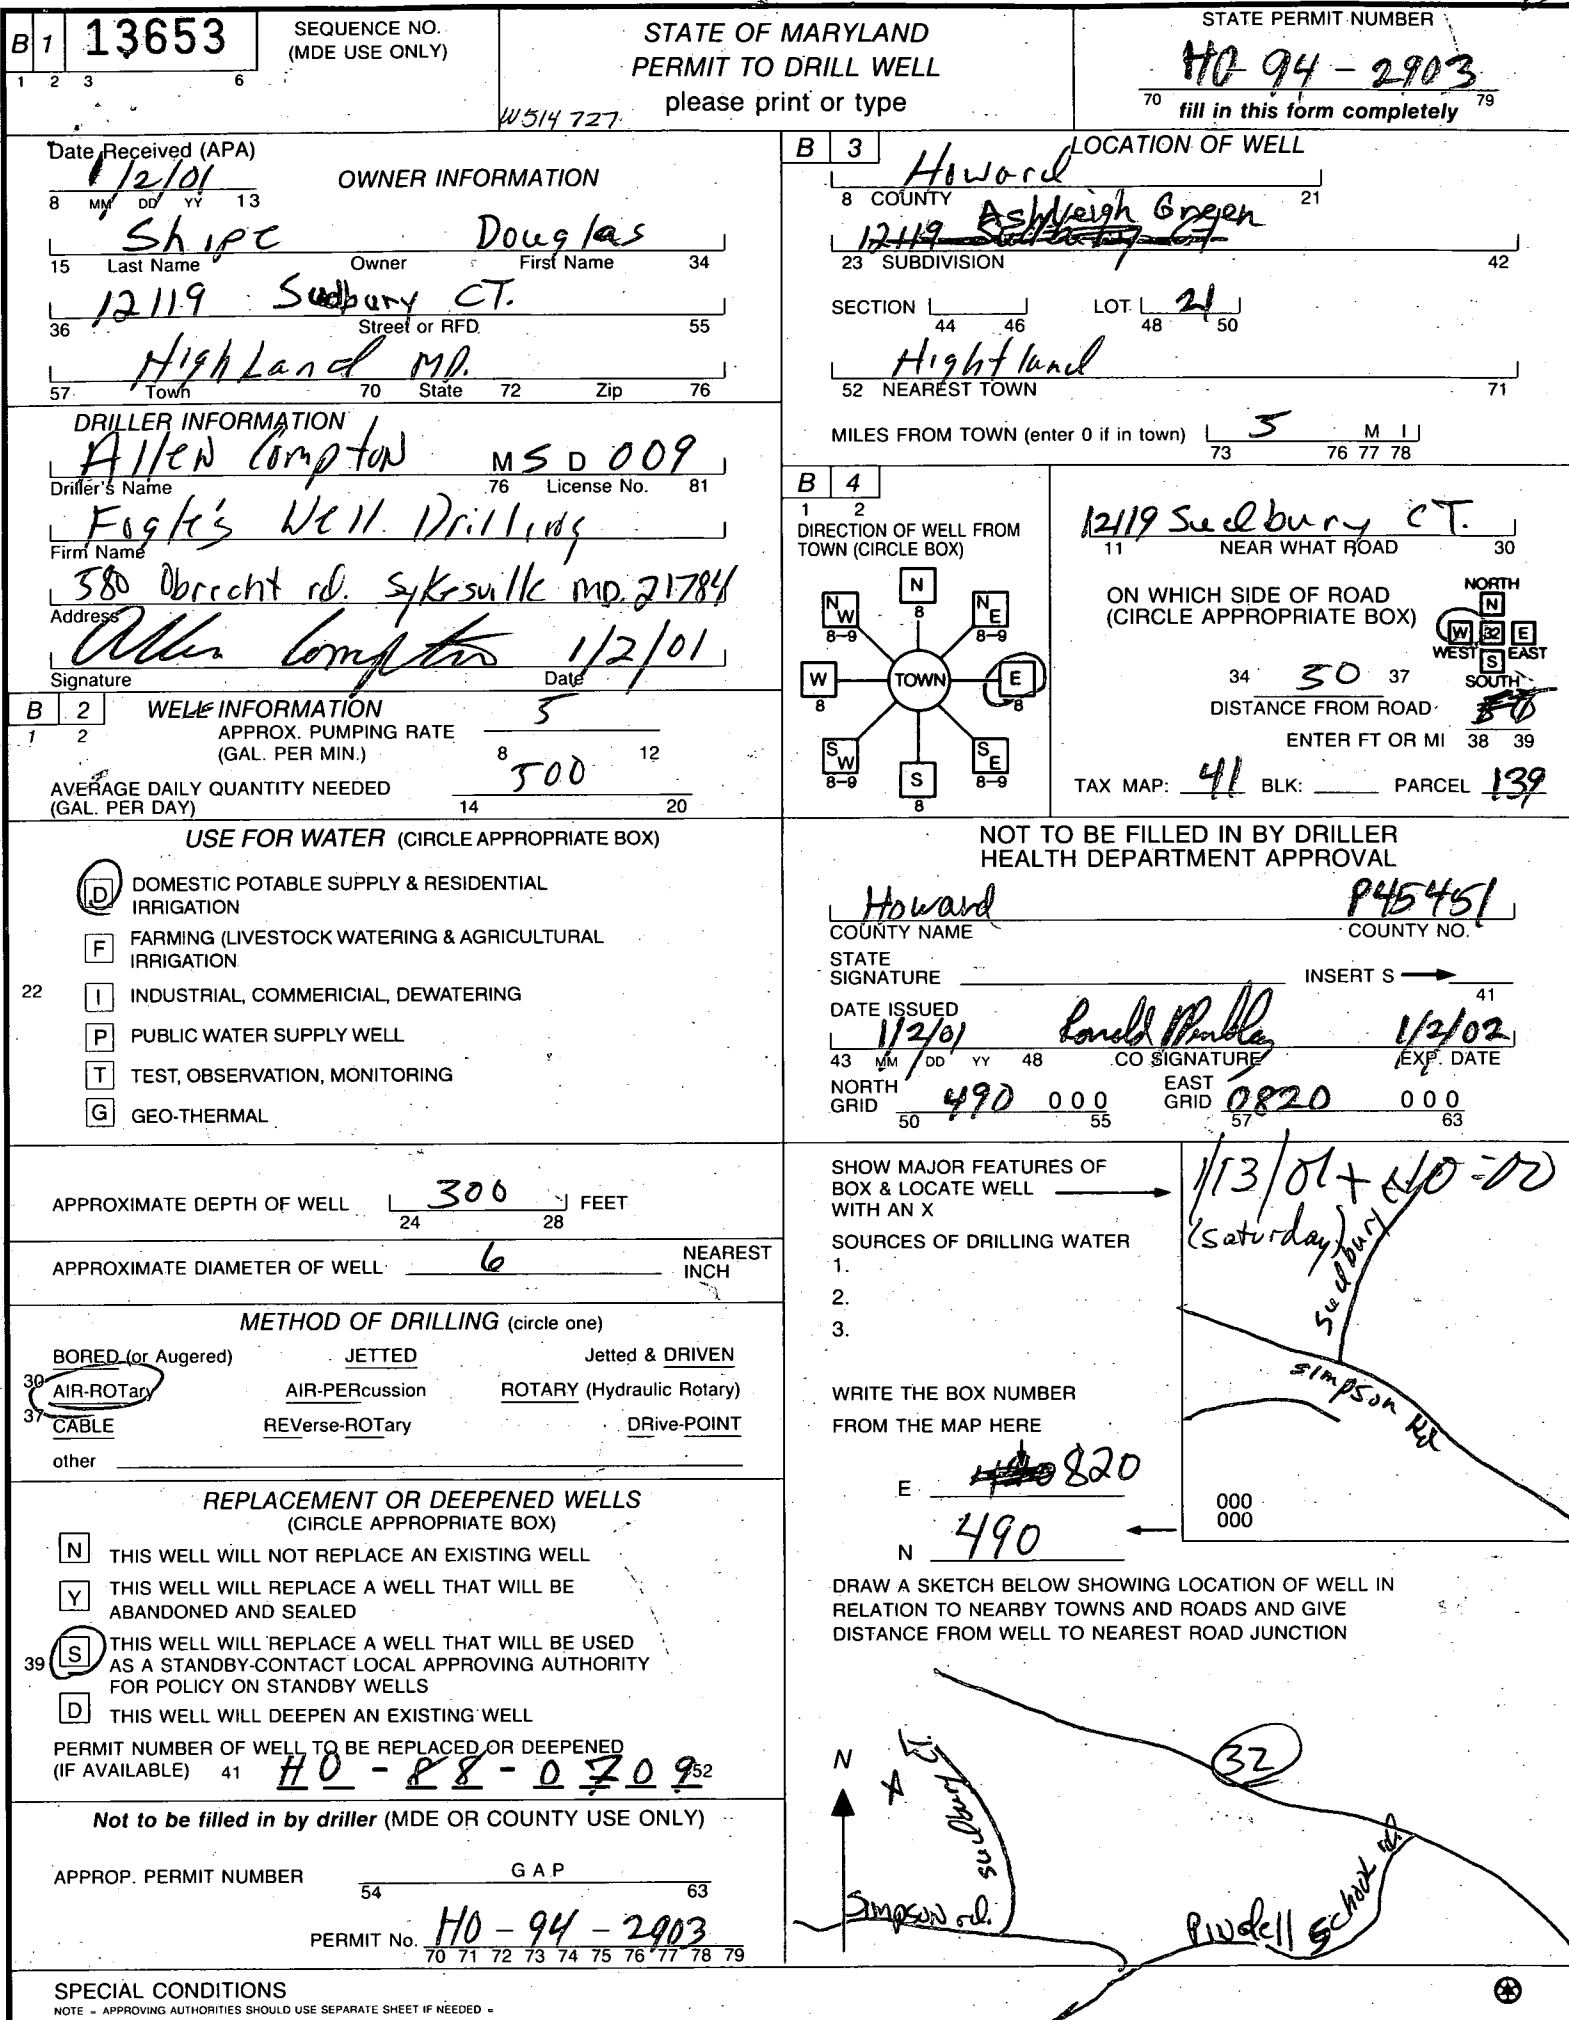 B 1 13653
1 2 3 6
SEQUENCE NO.
(MDE USE ONLY)
STATE OF MARYLAND
PERMIT TO DRILL WELL
please print or type
W514727
STATE PERMIT NUMBER
HO-94-2903
70 79
fill in this form completely
Date Received (APA)
1/2/01
8 MM DD YY 13
OWNER INFORMATION
Shipe Douglas
15 Last Name Owner First Name 34
12119 Sudbury CT.
36 Street or RFD 55
HighLand MD.
57 Town 70 State 72 Zip 76
DRILLER INFORMATION
Allen Compton M S D 009
Driller's Name 76 License No. 81
Fogle's Well Drilling
Firm Name
580 Obrecht rd. Sykesville MD. 21784
Address
Allen Compton 1/2/01
Signature Date
B 2 WELL INFORMATION
1 2
APPROX. PUMPING RATE
(GAL. PER MIN.)
5
8 12
AVERAGE DAILY QUANTITY NEEDED
(GAL. PER DAY)
500
14 20
USE FOR WATER (CIRCLE APPROPRIATE BOX)
D DOMESTIC POTABLE SUPPLY & RESIDENTIAL
IRRIGATION
F FARMING (LIVESTOCK WATERING & AGRICULTURAL
IRRIGATION
22 I INDUSTRIAL, COMMERICIAL, DEWATERING
P PUBLIC WATER SUPPLY WELL
T TEST, OBSERVATION, MONITORING
G GEO-THERMAL
APPROXIMATE DEPTH OF WELL 300 FEET
24 28
APPROXIMATE DIAMETER OF WELL 6 NEAREST
INCH
METHOD OF DRILLING (circle one)
BORED (or Augered) JETTED Jetted & DRIVEN
30 AIR-ROTary AIR-PERcussion ROTARY (Hydraulic Rotary)
37 CABLE REVerse-ROTary DRive-POINT
other
REPLACEMENT OR DEEPENED WELLS
(CIRCLE APPROPRIATE BOX)
N THIS WELL WILL NOT REPLACE AN EXISTING WELL
Y THIS WELL WILL REPLACE A WELL THAT WILL BE
ABANDONED AND SEALED
39 S THIS WELL WILL REPLACE A WELL THAT WILL BE USED
AS A STANDBY-CONTACT LOCAL APPROVING AUTHORITY
FOR POLICY ON STANDBY WELLS
D THIS WELL WILL DEEPEN AN EXISTING WELL
PERMIT NUMBER OF WELL TO BE REPLACED OR DEEPENED
(IF AVAILABLE) 41 HO-88-0709 52
Not to be filled in by driller (MDE OR COUNTY USE ONLY)
APPROP. PERMIT NUMBER G A P
54 63
PERMIT No. HO-94-2903
70 71 72 73 74 75 76 77 78 79
SPECIAL CONDITIONS
NOTE - APPROVING AUTHORITIES SHOULD USE SEPARATE SHEET IF NEEDED =
B 3 LOCATION OF WELL
Howard
8 COUNTY 21
Ashleigh Green
12119 Sudbury CT
23 SUBDIVISION 42
SECTION LOT 21
44 46 48 50
Hightland
52 NEAREST TOWN 71
MILES FROM TOWN (enter 0 if in town) 5 M I
73 76 77 78
B 4
1 2
DIRECTION OF WELL FROM
TOWN (CIRCLE BOX)
N
8
NW NE
8-9 8-9
W TOWN E
8 8
SW SE
8-9 8-9
S
8
12119 Sudbury CT.
11 NEAR WHAT ROAD 30
ON WHICH SIDE OF ROAD
(CIRCLE APPROPRIATE BOX)
NORTH
N
W 32 E
WEST EAST
S
SOUTH
34 50 37
DISTANCE FROM ROAD
ENTER FT OR MI 38 39
TAX MAP: 41 BLK: PARCEL 139
NOT TO BE FILLED IN BY DRILLER
HEALTH DEPARTMENT APPROVAL
Howard P45451
COUNTY NAME COUNTY NO.
STATE
SIGNATURE INSERT S
41
DATE ISSUED
1/2/01 1/2/02
43 MM DD YY 48 CO SIGNATURE EXP. DATE
NORTH
GRID 490 000
50 55
EAST
GRID 0820 000
57 63
SHOW MAJOR FEATURES OF
BOX & LOCATE WELL
WITH AN X
SOURCES OF DRILLING WATER
1.
2.
3.
WRITE THE BOX NUMBER
FROM THE MAP HERE
E 820
N 490
1/13/01
(Saturday)
Sudbury
Simpson Rd
000
000
DRAW A SKETCH BELOW SHOWING LOCATION OF WELL IN
RELATION TO NEARBY TOWNS AND ROADS AND GIVE
DISTANCE FROM WELL TO NEAREST ROAD JUNCTION
N
X
Sudbury CT
32
Simpson rd.
Pindell School rd.